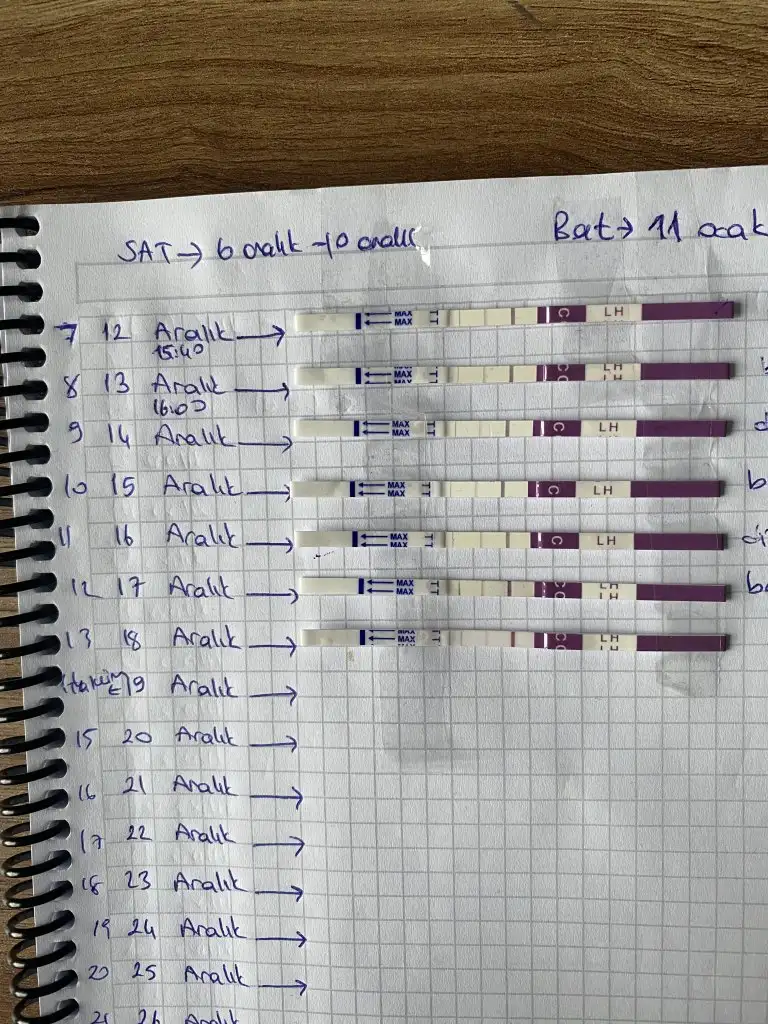 SAT → 6 aralık - 10 aralık
Bat → 11 ocak
7 12 Aralık → MAX MAX C LH
15:40
8 13 Aralık → MAX MAX C LH
16:00
9 14 Aralık → MAX MAX C LH
10 15 Aralık → MAX MAX C LH
11 16 Aralık → MAX MAX C LH
12 17 Aralık → MAX MAX C LH
13 18 Aralık → MAX MAX C LH
19 Aralık →
15 20 Aralık →
16 21 Aralık →
17 22 Aralık →
18 23 Aralık →
19 24 Aralık →
20 25 Aralık →
21 26 Aralık